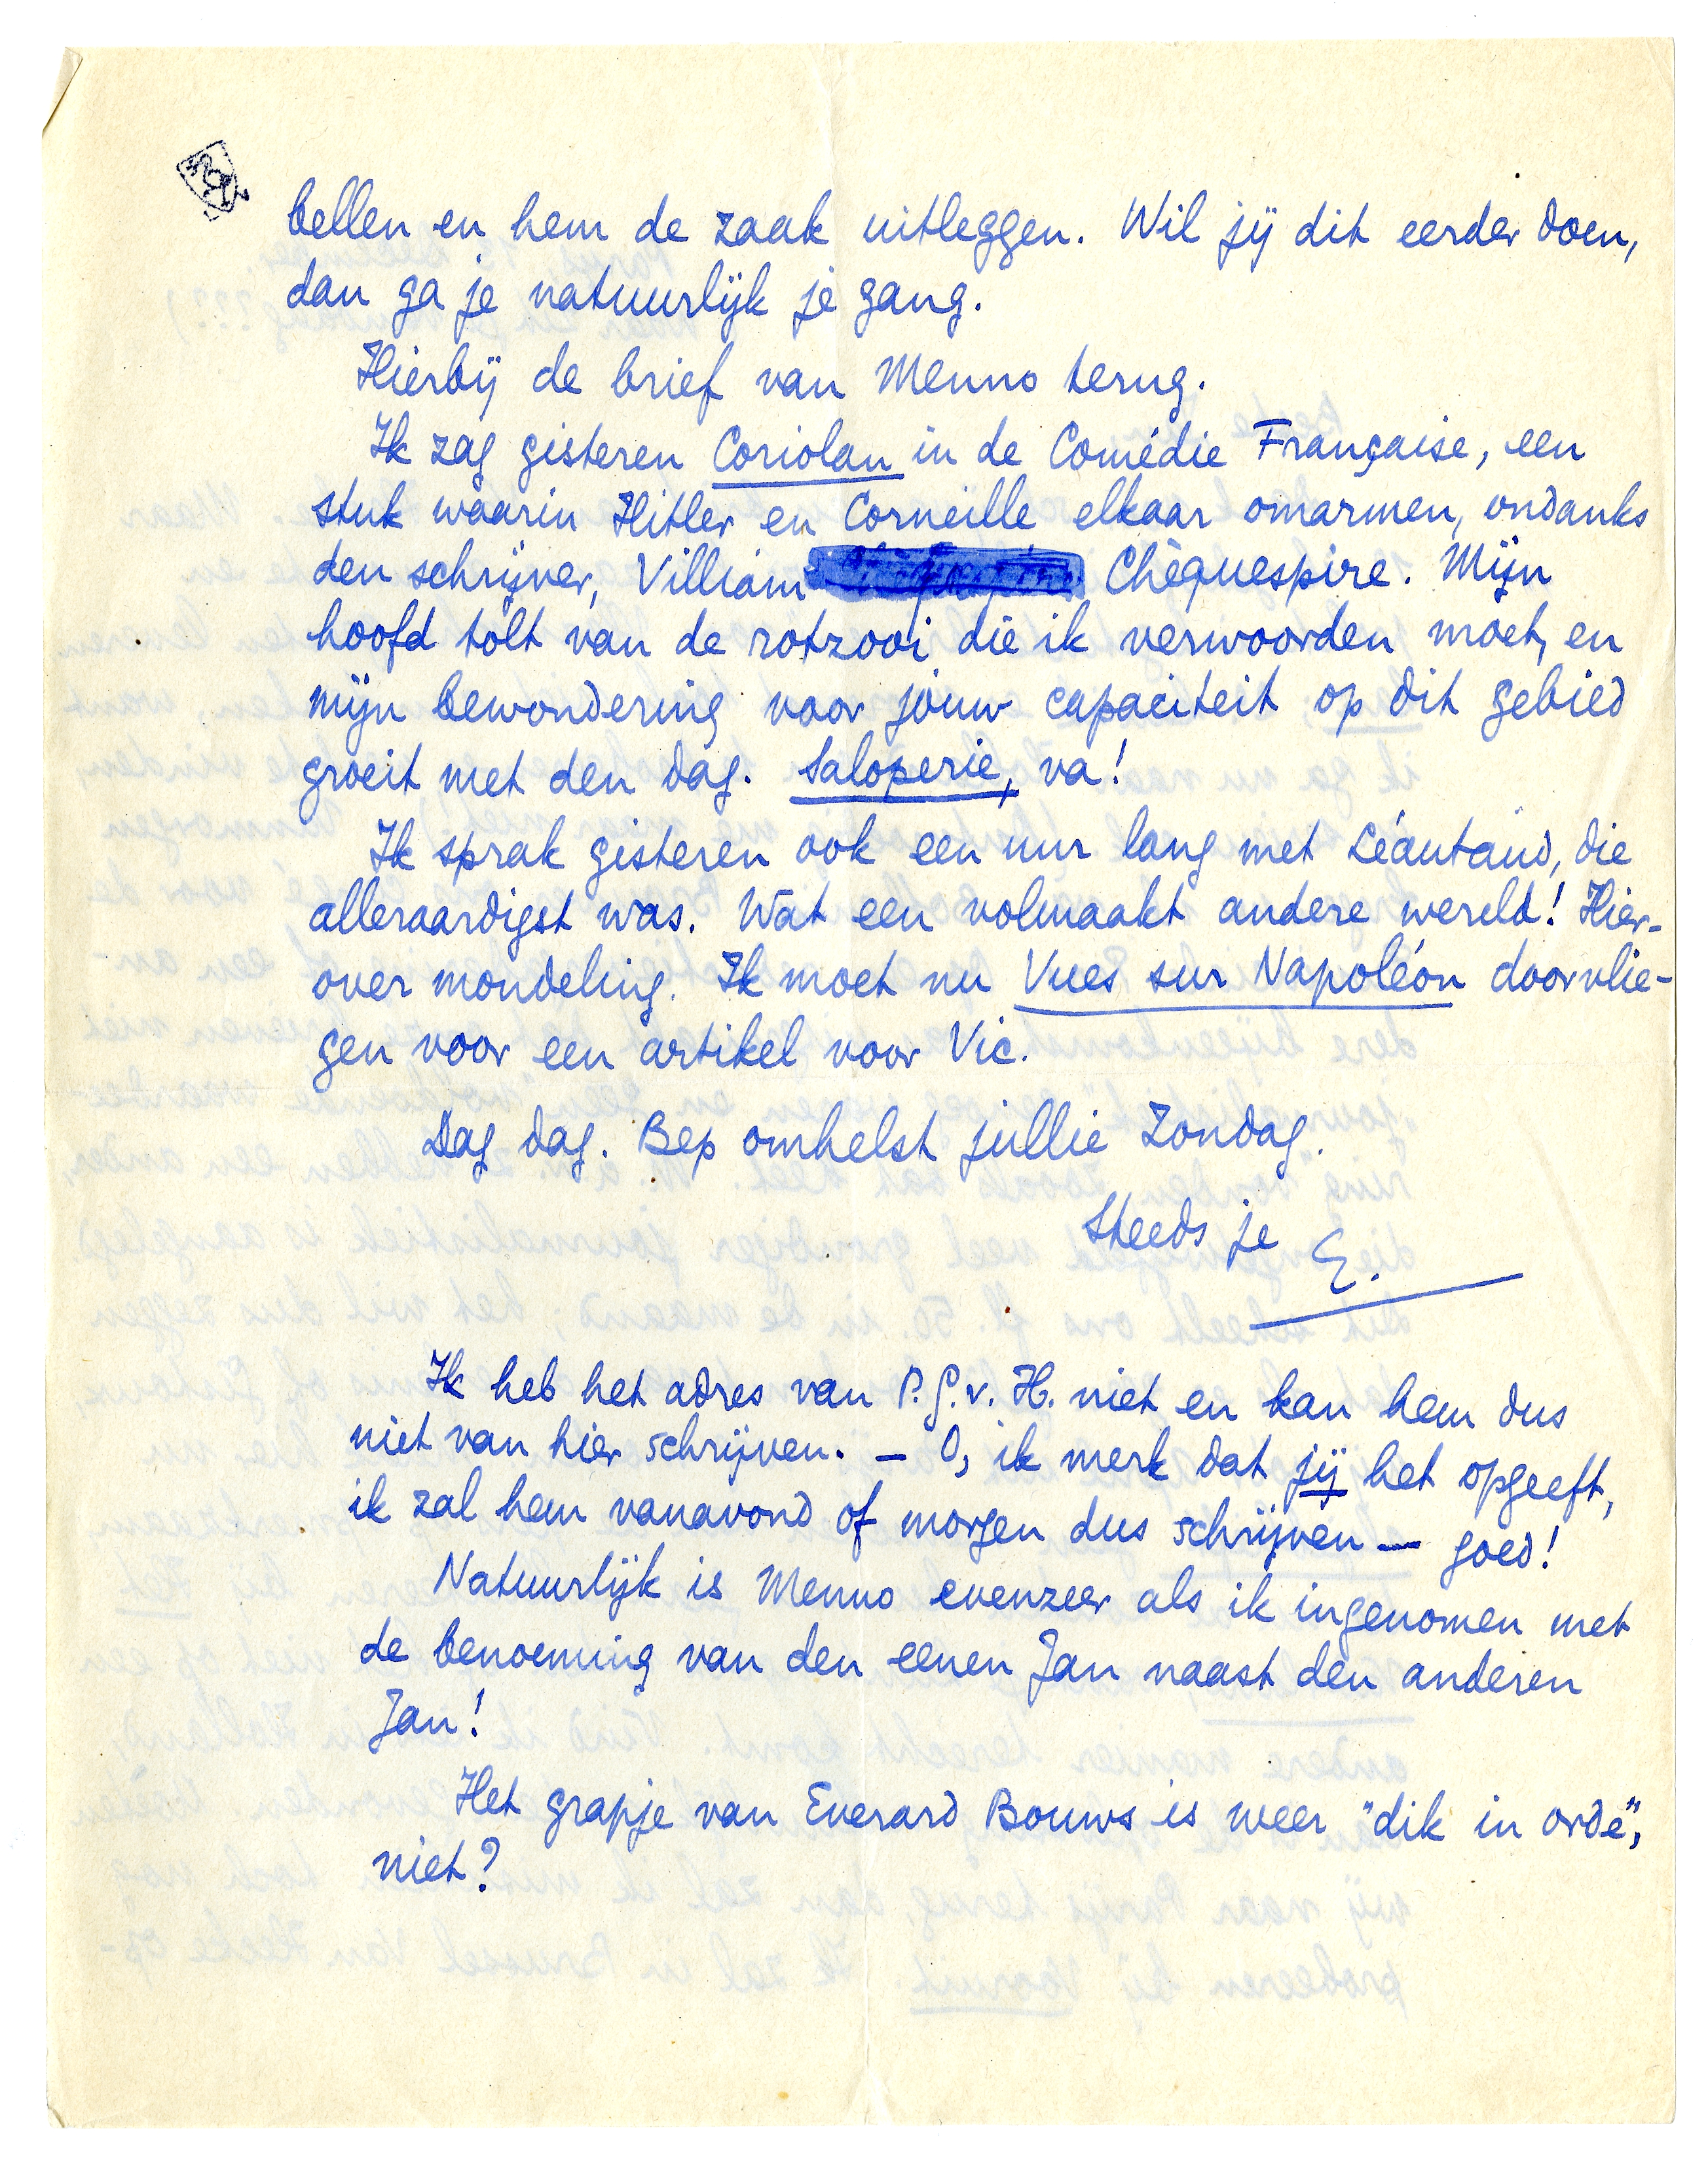 bellen en hem de zaak uitleggen. Wil jij dit eerder doen,
dan ga je natuurlijk je gang.
Hierbij de brief van Menno terug.
Ik zag gisteren Coriolan in de Comédie Française, een
stuk waarin Hitler en Corneille elkaar omarmen, ondanks
den schrijver, Villiam Chèquespire. Mijn
hoofd tolt van de rotzooi die ik verwoorden moet, en
mijn bewondering voor jouw capaciteit op dit gebied
groeit met den dag. Saloperie, va!
Ik sprak gisteren ook een uur lang met Léautaud, die
alleraardigst was. Wat een volmaakt andere wereld! Hier-
over mondeling. Ik moet nu Vues sur Napoléon doorvlie-
gen voor een artikel voor Vic.
Dag dag. Bep omhelst jullie Zondag.
Steeds je E.
Ik heb het adres van P.G.v.H. niet en kan hem dus
niet van hier schrijven. — O, ik merk dat jij het opgeeft,
ik zal hem vanavond of morgen dus schrijven — goed!
Natuurlijk is Menno evenzeer als ik ingenomen met
de benoeming van den eenen Jan naast den anderen
Jan!
Het grapje van Everard Bouws is weer "dik in orde",
niet?